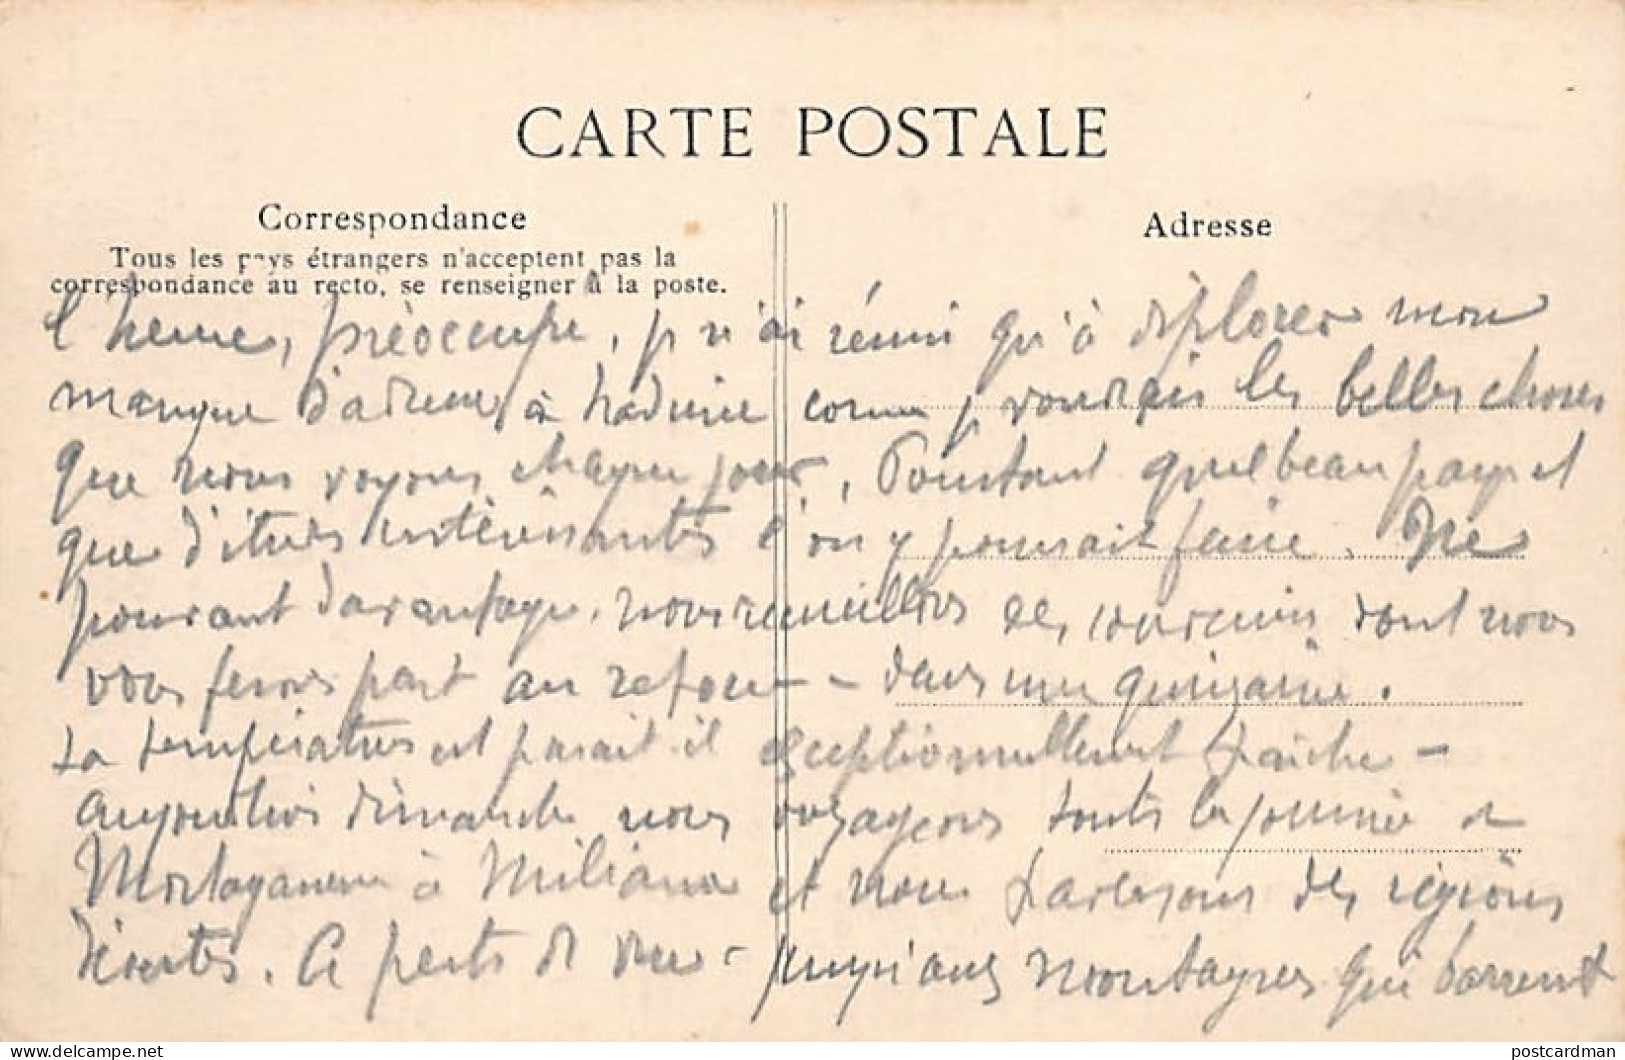 CARTE POSTALE
Correspondance
Adresse
Tous les pays étrangers n'acceptent pas la
correspondance au recto, se renseigner à la poste.
l'heure, préoccupe, je n'ai réussi qu'à déplorer mon
manque d'adresse à traduire comme je voudrais les belles choses
que nous voyons chaque jour. Pourtant quel beau pays et
que d'études intéressantes l'on y pourrait faire. Ne
pouvant davantage, nous recueillons des souvenirs dont nous
vous ferons part au retour - dans une quinzaine.
La température est parait il exceptionnellement fraîche -
aujourd'hui dimanche nous voyageons toute la journée de
Mostaganem à Miliana et nous traversons des régions
désertes. A perte de vue - jusqu'aux montagnes qui barrent
postcardman